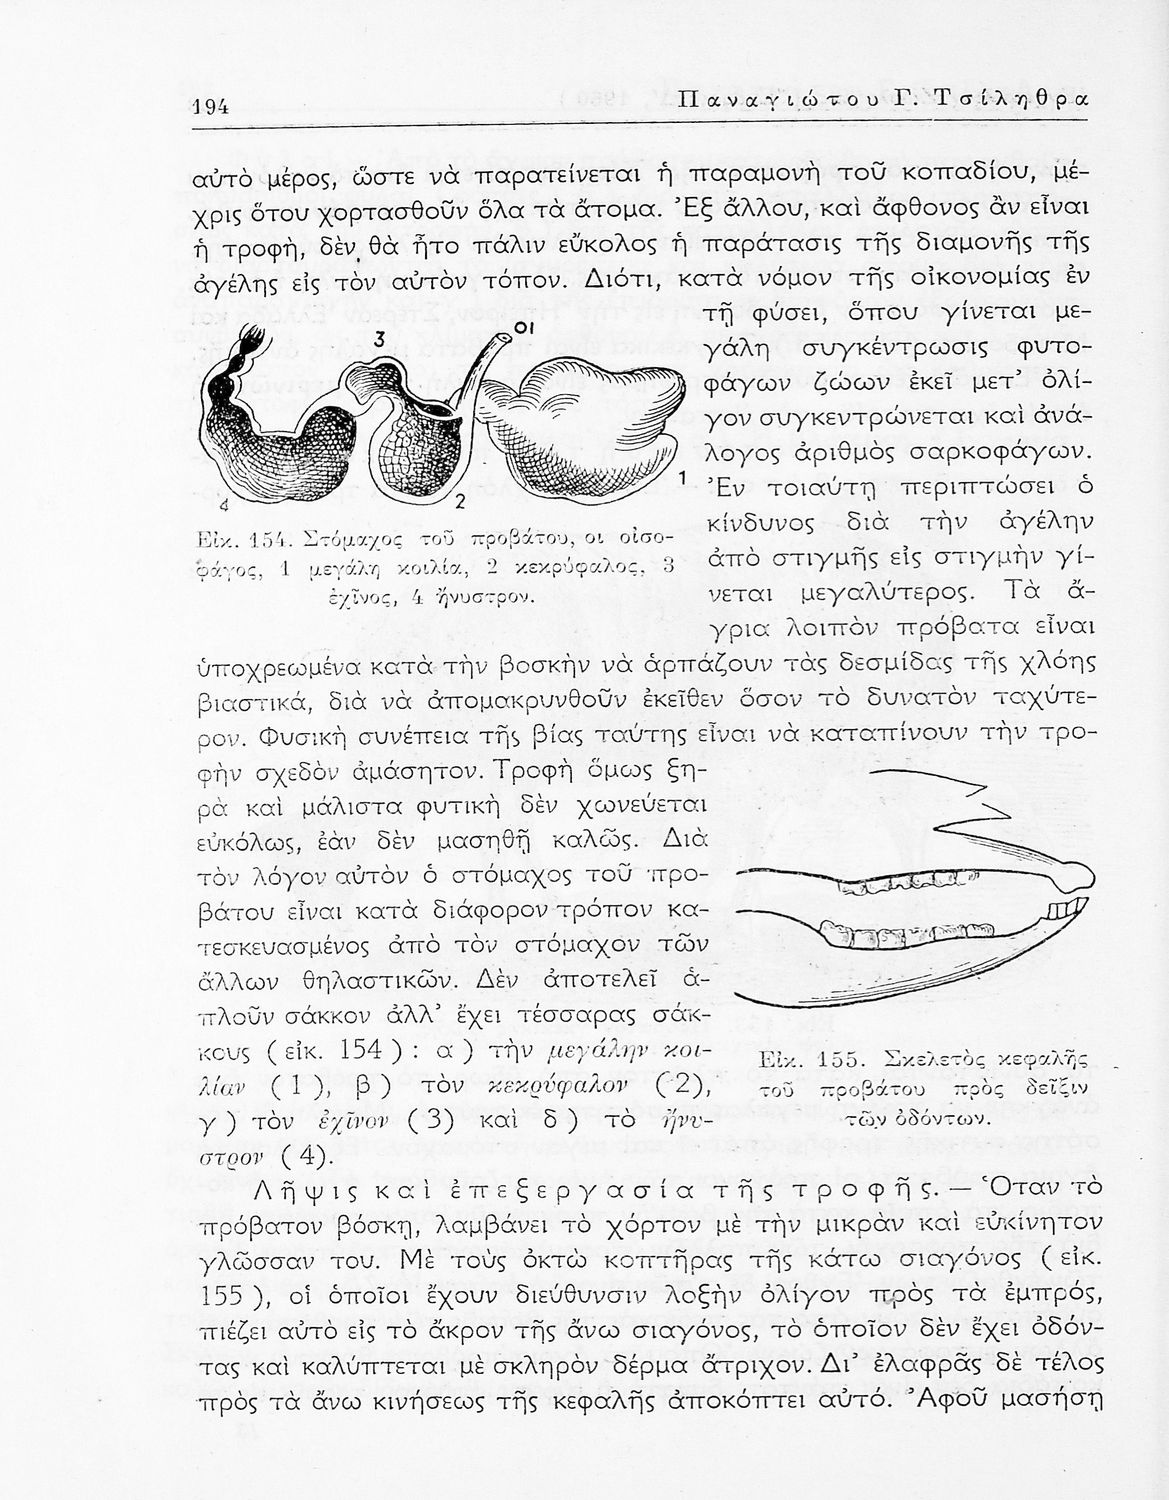 194
Παναγιώτου Γ. Τσίληθρα
αὐτὸ μέρος, ὥστε νὰ παρατείνεται ἡ παραμονὴ τοῦ κοπαδίου, μέ-
χρις ὅτου χορτασθοῦν ὅλα τὰ ἄτομα. Ἐξ ἄλλου, καὶ ἄφθονος ἂν εἶναι
ἡ τροφὴ, δὲν θὰ ἦτο πάλιν εὔκολος ἡ παράτασις τῆς διαμονῆς τῆς
ἀγέλης εἰς τὸν αὐτὸν τόπον. Διότι, κατὰ νόμον τῆς οἰκονομίας ἐν
τῇ φύσει, ὅπου γίνεται με-
γάλη συγκέντρωσις φυτο-
φάγων ζώων ἐκεῖ μετ' ὀλί-
γον συγκεντρώνεται καὶ ἀνά-
λογος ἀριθμὸς σαρκοφάγων.
Ἐν τοιαύτῃ περιπτώσει ὁ
κίνδυνος διὰ τὴν ἀγέλην
ἀπὸ στιγμῆς εἰς στιγμὴν γί-
νεται μεγαλύτερος. Τὰ ἄ-
γρια λοιπὸν πρόβατα εἶναι
3
οι
1
2
4
Εἰκ. 154. Στόμαχος τοῦ προβάτου, οι οἰσο-
φάγος, 1 μεγάλη κοιλία, 2 κεκρύφαλος, 3
ἐχῖνος, 4 ἤνυστρον.
ὑποχρεωμένα κατὰ τὴν βοσκὴν νὰ ἁρπάζουν τὰς δεσμίδας τῆς χλόης
βιαστικά, διὰ νὰ ἀπομακρυνθοῦν ἐκεῖθεν ὅσον τὸ δυνατὸν ταχύτε-
ρον. Φυσικὴ συνέπεια τῆς βίας ταύτης εἶναι νὰ καταπίνουν τὴν τρο-
φὴν σχεδὸν ἀμάσητον. Τροφὴ ὅμως ξη-
ρὰ καὶ μάλιστα φυτικὴ δὲν χωνεύεται
εὐκόλως, ἐὰν δὲν μασηθῇ καλῶς. Διὰ
τὸν λόγον αὐτὸν ὁ στόμαχος τοῦ προ-
βάτου εἶναι κατὰ διάφορον τρόπον κα-
τεσκευασμένος ἀπὸ τὸν στόμαχον τῶν
ἄλλων θηλαστικῶν. Δὲν ἀποτελεῖ ἁ-
πλοῦν σάκκον ἀλλ' ἔχει τέσσαρας σάκ-
κους ( εἰκ. 154 ) : α ) τὴν μεγάλην κοι-
λίαν ( 1 ), β ) τὸν κεκρύφαλον ( 2),
γ ) τὸν ἐχῖνον ( 3) καὶ δ ) τὸ ἤνυ-
στρον ( 4).
Εἰκ. 155. Σκελετὸς κεφαλῆς
τοῦ προβάτου πρὸς δεῖξιν
τῶν ὀδόντων.
Λῆψις καὶ ἐπεξεργασία τῆς τροφῆς. — Ὅταν τὸ
πρόβατον βόσκῃ, λαμβάνει τὸ χόρτον μὲ τὴν μικρὰν καὶ εὐκίνητον
γλῶσσαν του. Μὲ τοὺς ὀκτὼ κοπτῆρας τῆς κάτω σιαγόνος ( εἰκ.
155 ), οἱ ὁποῖοι ἔχουν διεύθυνσιν λοξὴν ὀλίγον πρὸς τὰ ἐμπρός,
πιέζει αὐτὸ εἰς τὸ ἄκρον τῆς ἄνω σιαγόνος, τὸ ὁποῖον δὲν ἔχει ὀδόν-
τας καὶ καλύπτεται μὲ σκληρὸν δέρμα ἄτριχον. Δι' ἐλαφρᾶς δὲ τέλος
πρὸς τὰ ἄνω κινήσεως τῆς κεφαλῆς ἀποκόπτει αὐτό. Ἀφοῦ μασήσῃ